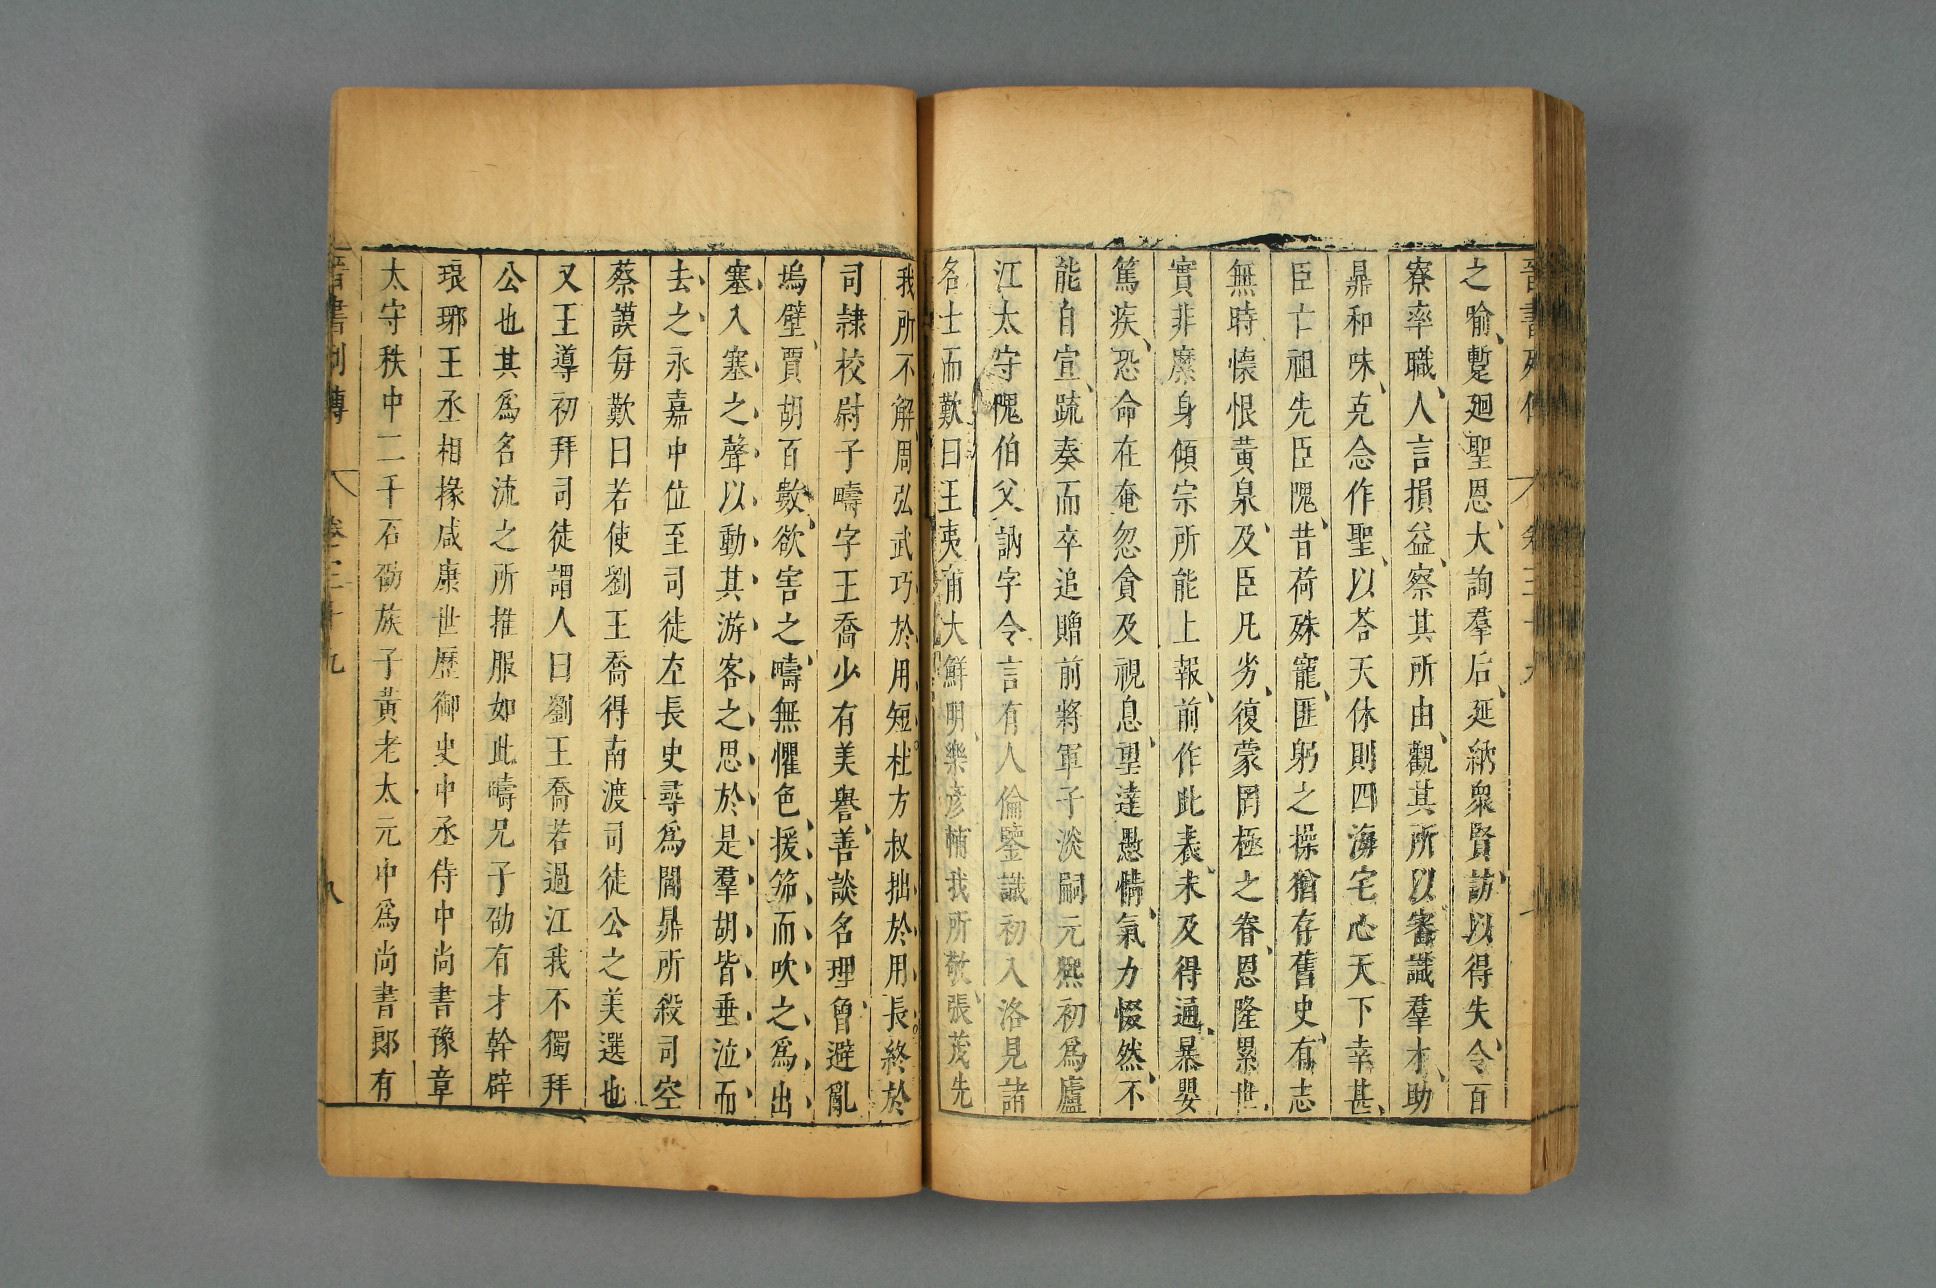 之喻暫廻聖恩大詢羣后延納衆賢訪以得失令百
寮率職人言損益察其所由觀其所以審識羣才助
鼎和味克念作聖以荅天休則四海宅心天下幸甚
臣亡祖先臣隗昔荷殊寵匪躬之操猶存舊史有志
無時懐恨黄泉及臣凡劣復蒙罔極之眷恩隆累世
實非糜身傾宗所能上報前作此表未及得通暴嬰
篤疾恐命在奄忽貪及視息望達愚情氣力惙然不
能自宣䟽奏而卒追贈前將軍子淡嗣元熙初爲廬
江太守隗伯父訥字令言有人倫鑒識初入洛見諸
名士而歎曰王夷甫大鮮明樂彦輔我所敬張茂先
我所不解周弘武巧於用短杜方叔拙於用長終於
司隷校尉子疇字王喬少有美譽善談名理曾避亂
塢壁賈胡百數欲害之疇無懼色援笳而吹之爲出
塞入塞之聲以動其游客之思於是羣胡皆垂泣而
去之永嘉中位至司徒左長史尋爲閻鼎所殺司空
蔡謨每歎曰若使劉王喬得南渡司徒公之美選也
又王導初拜司徒謂人曰劉王喬若過江我不獨拜
公也其爲名流之所推服如此疇兄子劭有才幹辟
琅琊王丞相掾咸康世歷御史中丞侍中尚書豫章
太守秩中二千石劭族子黄老太元中爲尚書郎有
晉書列傳 卷三十九 八